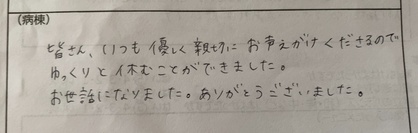 (病棟)
皆さん、いつも優しく親切に お声えがけくださるので
ゆっくりと休むことができました。
お世話になりました。ありがとうございました。